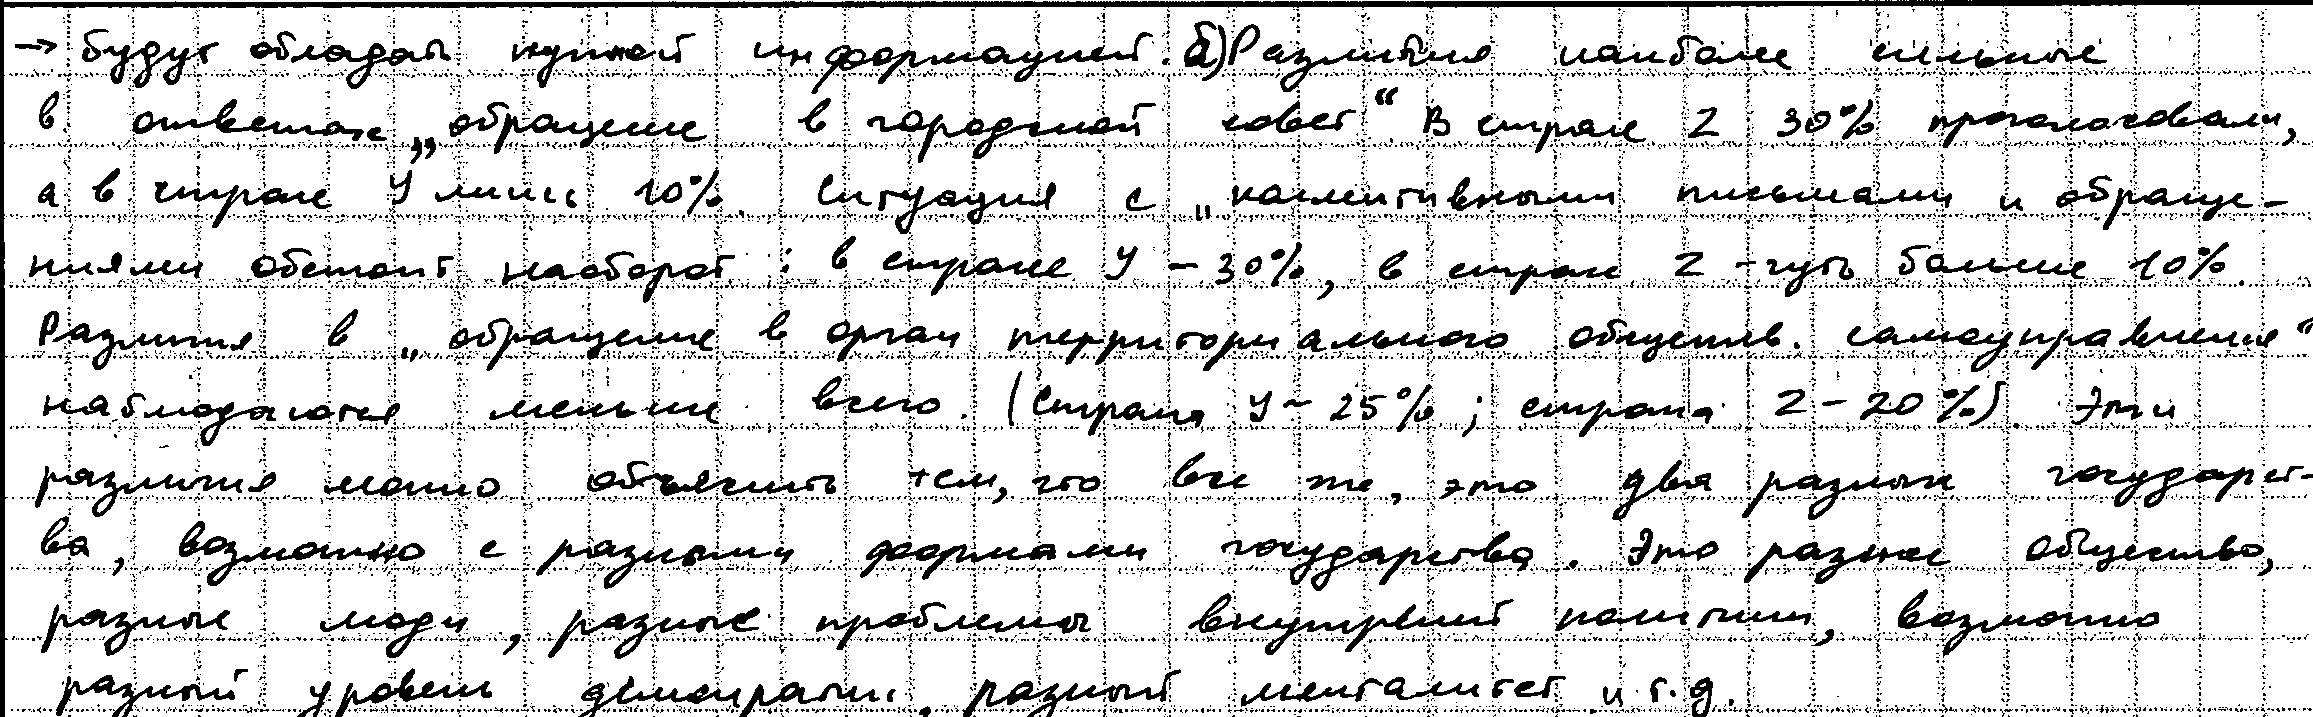 → будут обладать нужной информацией. б) Различия наиболее сильные
в ответах „обращение в городской совет“. В стране Z 30% проголосовали,
а в стране У лишь 10%. Ситуация с „коллективными письмами и обраще-
ниями обстоит наоборот: в стране У – 30%, в стране Z – чуть больше 10%.
Различия в „обращение в орган территориального обществ. самоуправления“
наблюдаются меньше всего. (Страна У – 25%; страна Z – 20%). Эти
различия можно объяснить тем, что все же, это два разных государст-
ва, возможно с разными формами государства. Это разное общество,
разные люди, разные проблемы внутренней политики, возможно
разный уровень демократии, разный менталитет и т.д.